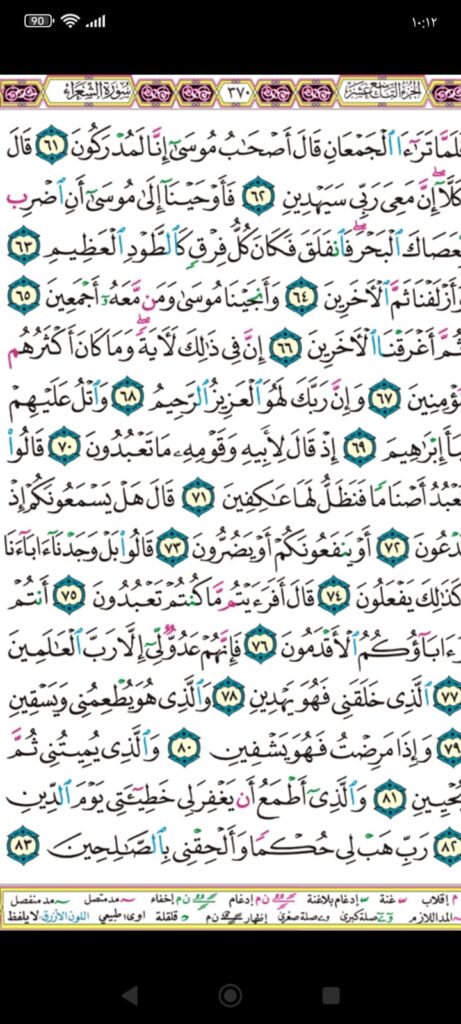 90
١٠:١٢
سُورَةُ الشُّعَرَاءِ
٣٧٠
الجزء التاسع عشر
فَلَمَّا تَرَٰٓءَا ٱلْجَمْعَانِ قَالَ أَصْحَٰبُ مُوسَىٰٓ إِنَّا لَمُدْرَكُونَ ٦١ قَالَ
كَلَّآ إِنَّ مَعِىَ رَبِّى سَيَهْدِينِ ٦٢ فَأَوْحَيْنَآ إِلَىٰ مُوسَىٰٓ أَنِ ٱضْرِب
بِّعَصَاكَ ٱلْبَحْرَ فَٱنفَلَقَ فَكَانَ كُلُّ فِرْقٍ كَٱلطَّوْدِ ٱلْعَظِيمِ ٦٣
وَأَزْلَفْنَا ثَمَّ ٱلْءَاخَرِينَ ٦٤ وَأَنجَيْنَا مُوسَىٰ وَمَن مَّعَهُۥٓ أَجْمَعِينَ ٦٥
ثُمَّ أَغْرَقْنَا ٱلْءَاخَرِينَ ٦٦ إِنَّ فِى ذَٰلِكَ لَءَايَةً وَمَا كَانَ أَكْثَرُهُم
مُّؤْمِنِينَ ٦٧ وَإِنَّ رَبَّكَ لَهُوَ ٱلْعَزِيزُ ٱلرَّحِيمُ ٦٨ وَٱتْلُ عَلَيْهِمْ
نَبَأَ إِبْرَٰهِيمَ ٦٩ إِذْ قَالَ لِأَبِيهِ وَقَوْمِهِۦ مَا تَعْبُدُونَ ٧٠ قَالُوا۟
نَعْبُدُ أَصْنَامًا فَنَظَلُّ لَهَا عَٰكِفِينَ ٧١ قَالَ هَلْ يَسْمَعُونَكُمْ إِذْ
تَدْعُونَ ٧٢ أَوْ يَنفَعُونَكُمْ أَوْ يَضُرُّونَ ٧٣ قَالُوا۟ بَلْ وَجَدْنَآ ءَابَآءَنَا
كَذَٰلِكَ يَفْعَلُونَ ٧٤ قَالَ أَفَرَءَيْتُم مَّا كُنتُمْ تَعْبُدُونَ ٧٥ أَنتُمْ
وَءَابَآؤُكُمُ ٱلْأَقْدَمُونَ ٧٦ فَإِنَّهُمْ عَدُوٌّ لِّىٓ إِلَّا رَبَّ ٱلْعَٰلَمِينَ
٧٧ ٱلَّذِى خَلَقَنِى فَهُوَ يَهْدِينِ ٧٨ وَٱلَّذِى هُوَ يُطْعِمُنِى وَيَسْقِينِ
٧٩ وَإِذَا مَرِضْتُ فَهُوَ يَشْفِينِ ٨٠ وَٱلَّذِى يُمِيتُنِى ثُمَّ
يُحْيِينِ ٨١ وَٱلَّذِىٓ أَطْمَعُ أَن يَغْفِرَ لِى خَطِيٓـَٔتِى يَوْمَ ٱلدِّينِ
٨٢ رَبِّ هَبْ لِى حُكْمًا وَأَلْحِقْنِى بِٱلصَّٰلِحِينَ ٨٣
م إقلاب غنة إدغام بلاغنة ن م إدغام إخفاء مد متصل مد منفصل
المد اللازم صلة كبرى صلة صغرى إظهار ن م قلقلة اوى طبيعي اللون الأزرق: لا يلفظ